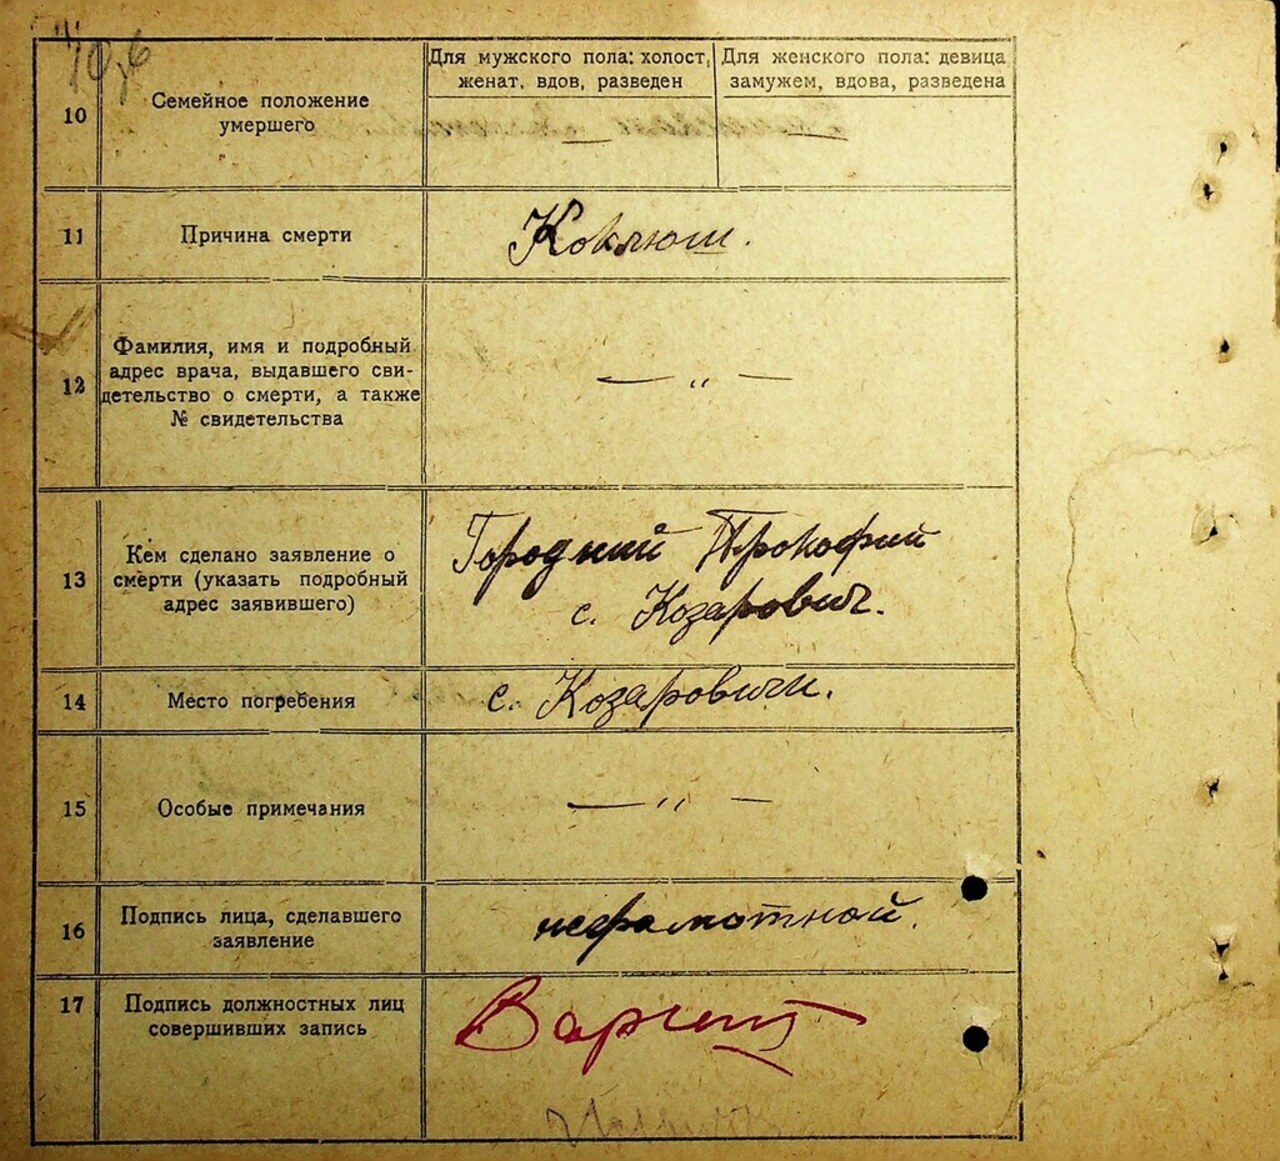 10,6
10
Семейное положение
умершего
Для мужского пола: холост,
женат, вдов, разведен
Для женского пола: девица
замужем, вдова, разведена
—
—
11
Причина смерти
Коклюш.
12
Фамилия, имя и подробный
адрес врача, выдавшего сви-
детельство о смерти, а также
№ свидетельства
— " —
13
Кем сделано заявление о
смерти (указать подробный
адрес заявившего)
Городний Прокофий
с. Козарович.
14
Место погребения
с. Козаровичи.
15
Особые примечания
— " —
16
Подпись лица, сделавшего
заявление
неграмотной.
17
Подпись должностных лиц
совершивших запись